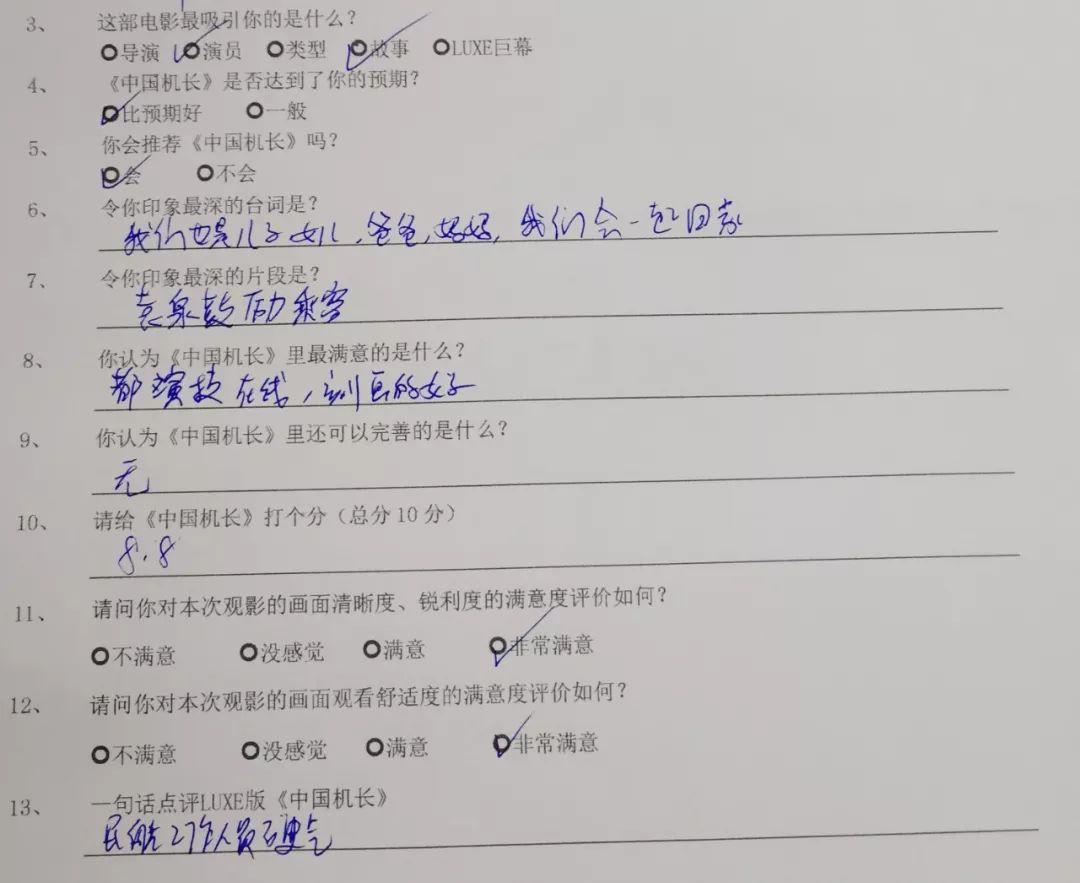 3、 这部电影最吸引你的是什么？
导演 演员 类型 故事 LUXE巨幕
4、 《中国机长》是否达到了你的预期？
比预期好 一般
5、 你会推荐《中国机长》吗？
会 不会
6、 令你印象最深的台词是？
我们也是儿子女儿，爸爸，妈妈，我们会一起回家
7、 令你印象最深的片段是？
袁泉鼓励乘客
8、 你认为《中国机长》里最满意的是什么？
都演技在线，的好
9、 你认为《中国机长》里还可以完善的是什么？
无
10、 请给《中国机长》打个分（总分10分）
8.8
11、 请问你对本次观影的画面清晰度、锐利度的满意度评价如何？
不满意 没感觉 满意 非常满意
12、 请问你对本次观影的画面观看舒适度的满意度评价如何？
不满意 没感觉 满意 非常满意
13、 一句话点评LUXE版《中国机长》
民航工作人员硬气